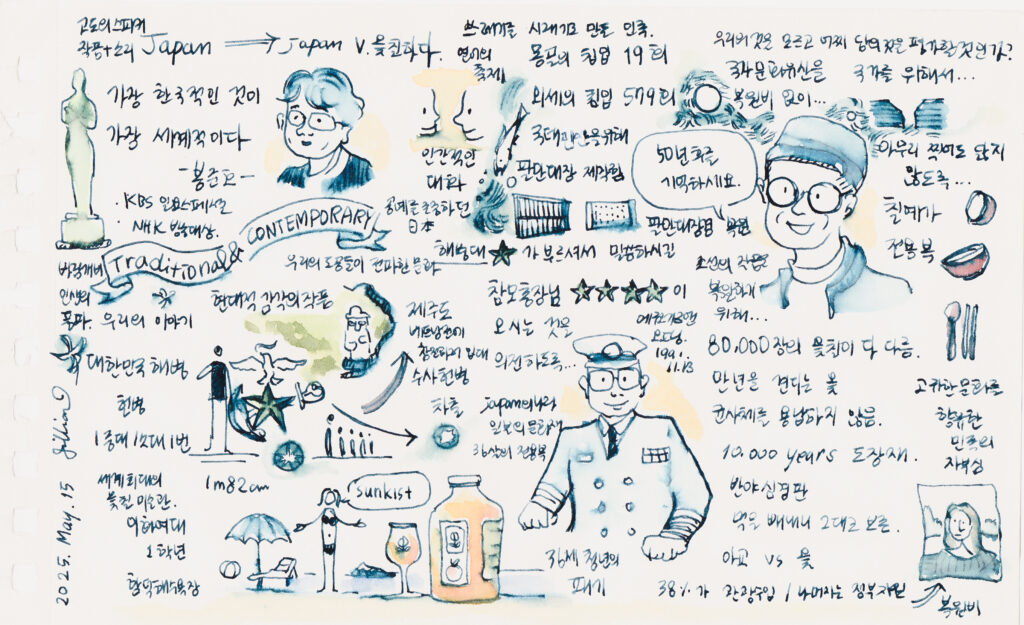 고도의 스피커
작품+소리 Japan → Japan v. 옻칠하다.
가장 한국적인 것이
가장 세계적이다
-봉준호-
KBS 일요스페셜
NHK 방송대상.
Traditional & CONTEMPORARY
우리의 도공들이 전파한 문화
바람깨비
인생의
폭파. 우리의 이야기
현대적 감각의 작품
쓰레기를 시래기로 만든 민족.
몽골의 침입 19회
외세의 침입 579회
국태민안을 위해
판만대장 제작함
인간적인
대화
공예를 존중하던
日本
판만대장경 복원
해병대 ★가 부르셔서 말씀하시길
참모총장님 ★★★★이
오시는 것을
의전하도록...
우리의 것은 모르고 어찌 남의 것을 평가할 것인가?
국가 문화유산을 국가를 위해서...
복원비 없이...
50년 최근
기억하세요.
아무리 찍어도 닳지
않도록...
칠예가
전용복
조선의 작품을
복원하기
위해...
80,000장의 옻칠이 다 다름.
만년을 견디는 옻
균사체를 용납하지 않음.
10,000 years 도장재.
반야심경판
먹을 빼내니 그대로 보존.
아교 vs 옻
38%가 관광수입 / 나머지는 정부지원
고귀한 문화를
향유한
민족의
자부심
복원비
제주도
수사헌병
차출
Japan의 나라
일본의 문화재
36살의 전용복
36세 청년의
패기
대한민국 해병
헌병
1중대 1소대 1번
1m82cm
세계 최대의
옻전 미술관.
이화여대
1학년
함덕해수욕장
sunkist
2025. May. 15 jillian